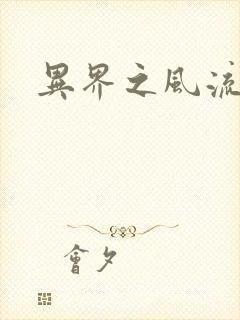 異界之風流
會夕